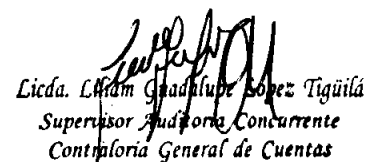 Licda. Liliam Guadalupe López Tigüilá
Supervisor Auditoría Concurrente
Contraloria General de Cuentas